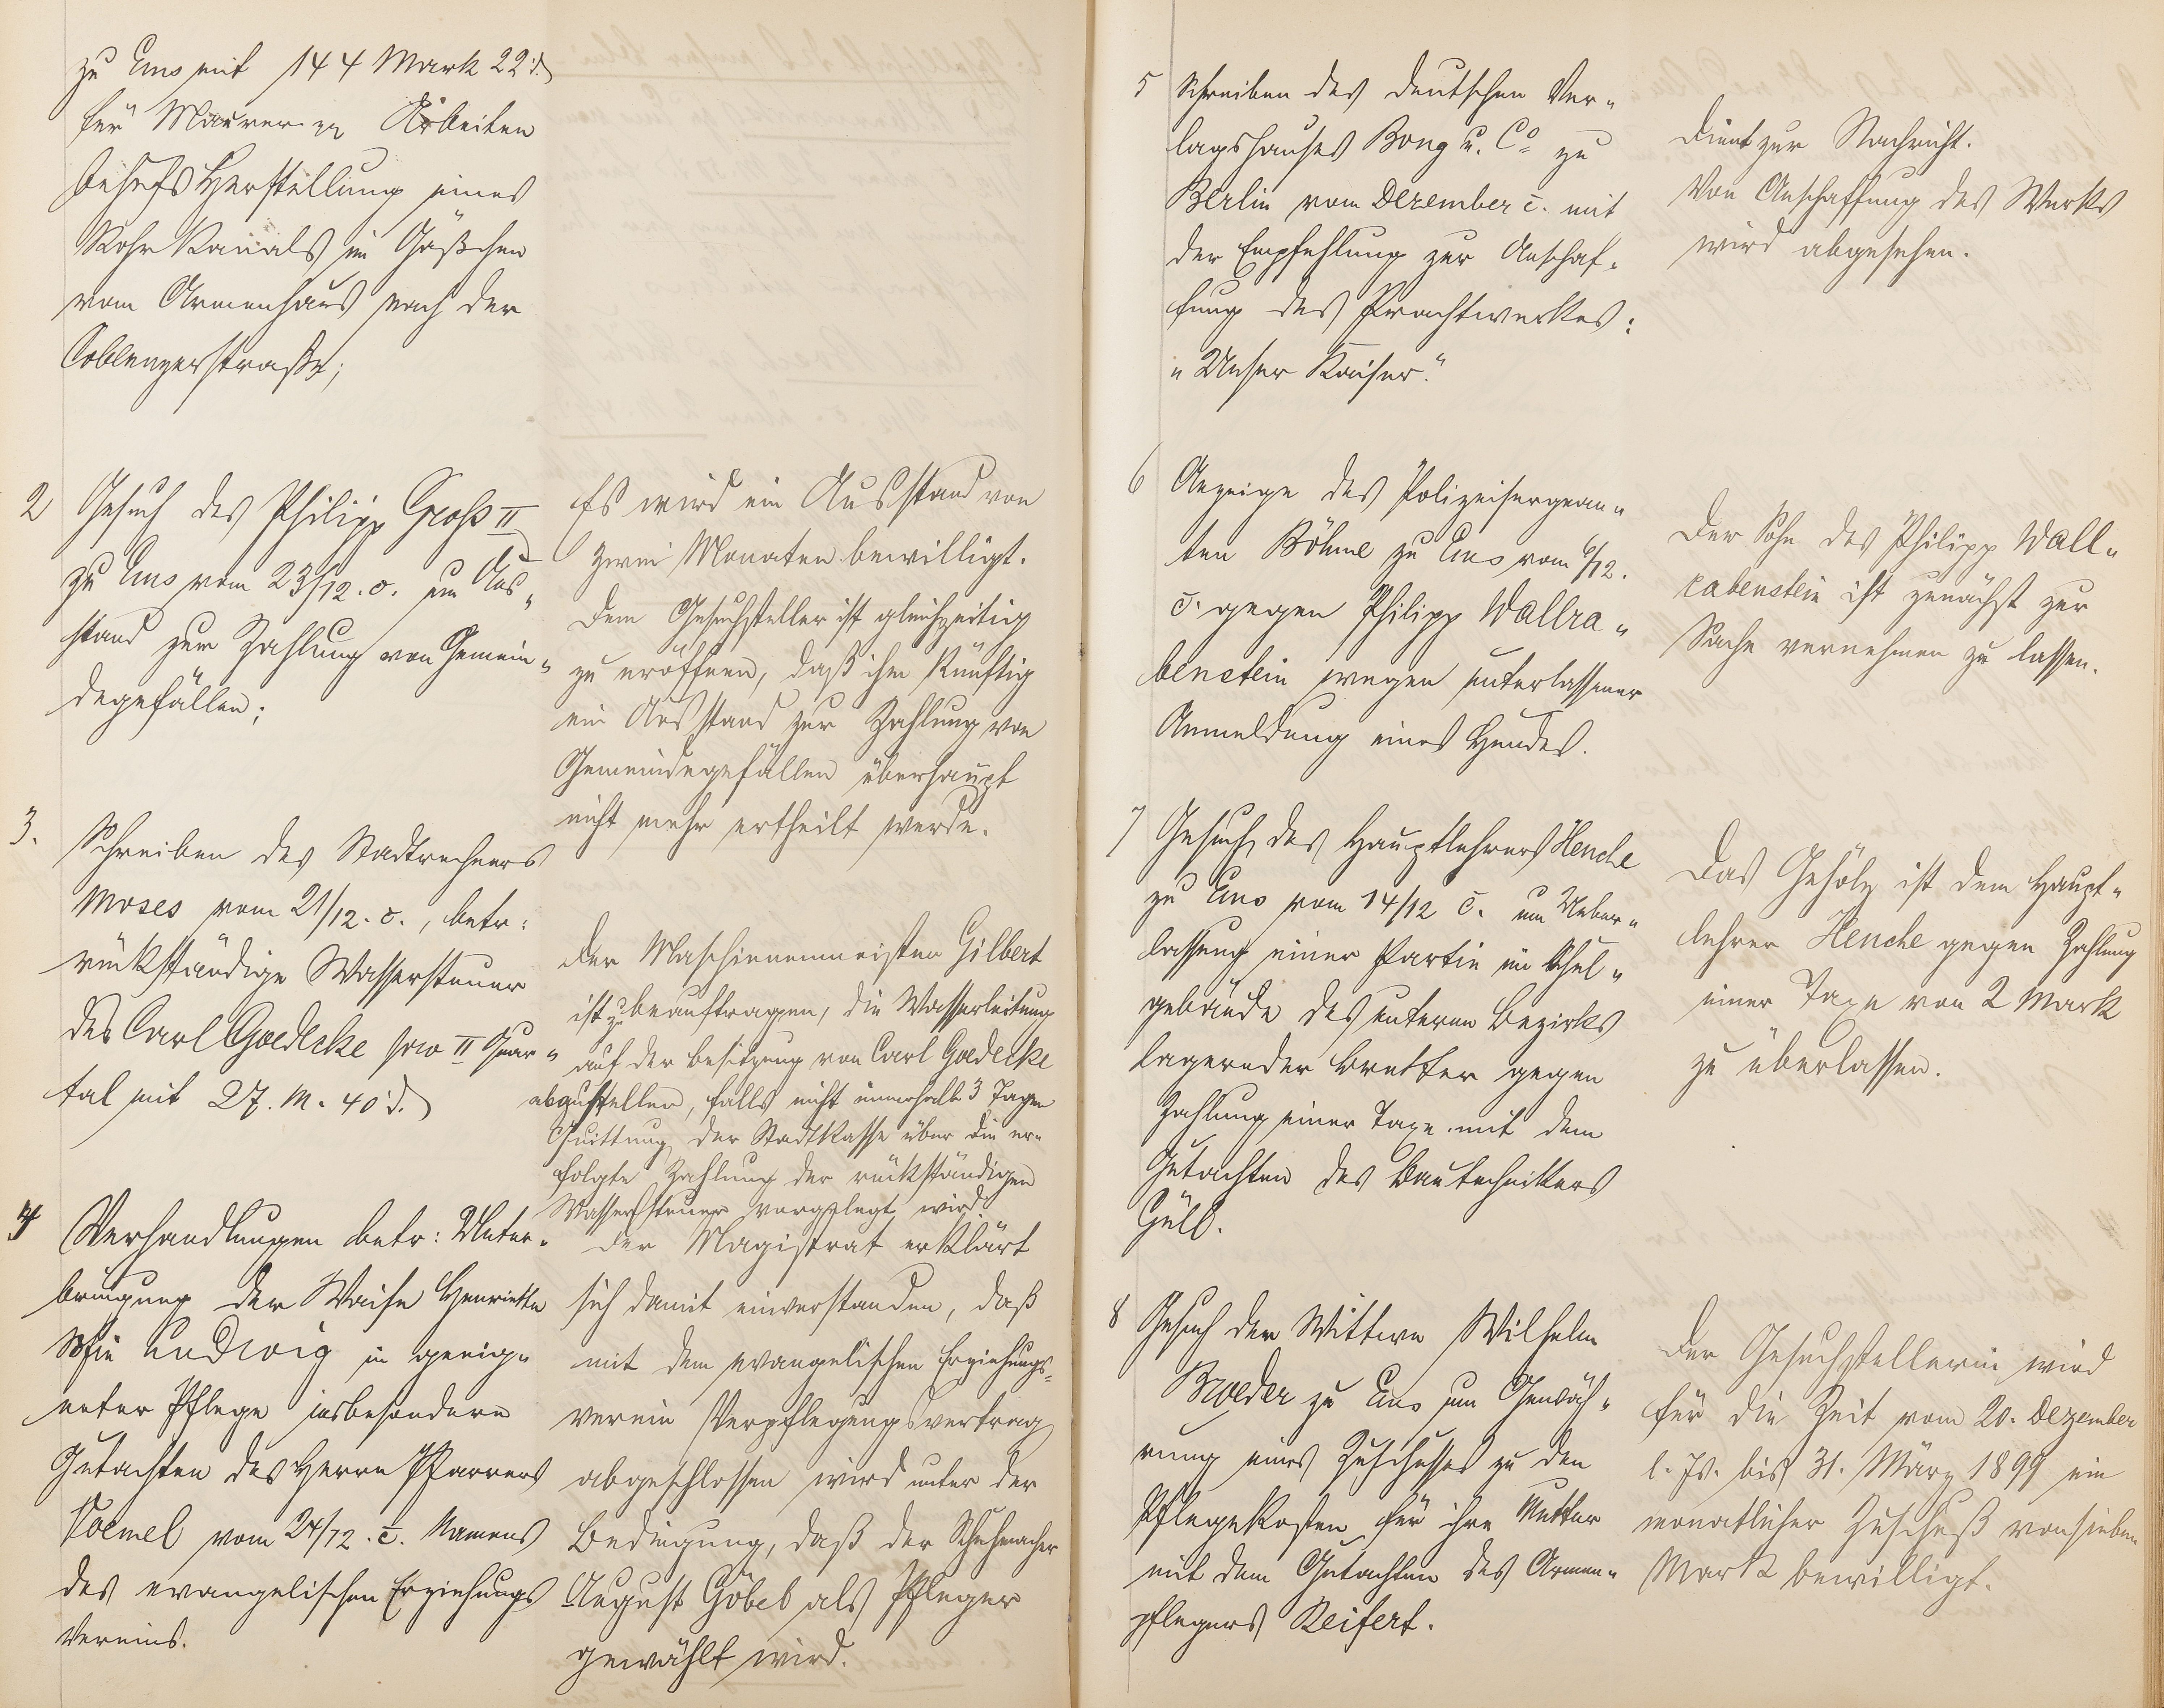 zu Ems mit 144 Mark 22 d.
für Maurer- pp Arbeiten
behufs Herstellung eines
Rohrkanals im Gäßchen
vom Armenhaus nach der
Coblenzerstraße;
2 Gesuch des Philipp Groß II
zu Ems vom 23/12. c. um Aus„
stand zur Zahlung von Gemein„
degefällen;
Es wird ein Ausstand von
zwei Monaten bewilligt.
Dem Gesuchsteller ist gleichzeitig
zu eröffnen, daß ihm künftig
ein Ausstand zur Zahlung von
Gemeindegefällen überhaupt
nicht mehr ertheilt werde.
3. Schreiben des Stadtrechners
Moses vom 21/12. c., betr:
rückständige Wassersteuer
des Carl Goedecke pro II Quar„
tal mit 27. M. 40 d.
Der Maschinenmeister Gilbert
ist zu beauftragen, die Wasserleitung
auf der Besitzung von Carl Goedecke
abzustellen, falls nicht innerhalb 3 Tagen
Quittung der Stadtkasse über die er„
folgte Zahlung der rückständigen
Wassersteuer vorgelegt wird.
4 Verhandlungen betr: Unter„
bringung der Waise Henriette
Sofie Ludwig in geeig„
neter Pflege insbesondere
Gutachten des Herrn Pfarrers
Voemel vom 24/12. c. Namens
des evangelischen Erziehungs
Vereins.
Der Magistrat erklärt
sich damit einverstanden, daß
mit dem evangelischen Erziehungs-
verein Verpflegungsvertrag
abgeschlossen wird unter der
Bedingung, daß der Schuhmacher
August Göbel als Pfleger
gewählt wird.
5 Schreiben des Deutschen Ver„
lagshauses Bong u. Co zu
Berlin vom Dezember c. mit
der Empfehlung zur Anschaf„
fung des Prachtwerkes:
„Unser Kaiser“.
Dient zur Nachricht.
Von Anschaffung des Werks
wird abgesehen.
6 Anzeige des Polizeisergean„
ten Böhme zu Ems vom 6/12.
c. gegen Philipp Wallra„
benstein wegen unterlassener
Anmeldung eines Hundes.
Der Sohn des Philipp Wall„
rabenstein ist zunächst zur
Sache vernehmen zu lassen.
7 Gesuch des Hauptlehrers Henche
zu Ems vom 14/12 c. um Ueber„
lassung einer Partie im Schul„
gebäude des unteren Bezirks
lagernder Bretter gegen
Zahlung einer Taxe mit dem
Gutachten des Bautechnikers
Güll.
Das Gehölz ist dem Haupt„
lehrer Henche gegen Zahlung
einer Taxe von 2 Mark
zu überlassen.
8 Gesuch der Wittwe Wilhelm
Broeder zu Ems um Gewäh„
rung eines Zuschusses zu den
Pflegekosten für ihre Mutter
mit dem Gutachten des Armen„
pflegers Reifert.
Der Gesuchstellerin wird
für die Zeit vom 20. Dezember
l. Js. bis 31. März 1899 ein
monatlicher Zuschuß von sieben
Mark bewilligt.